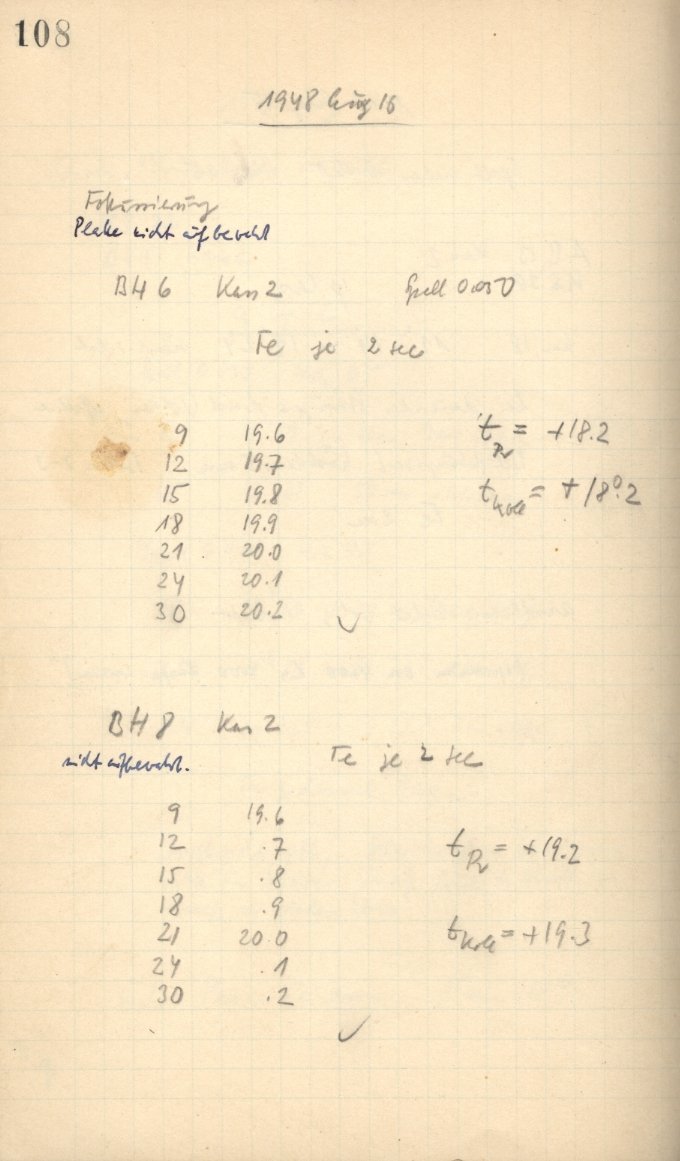 108
1948 Aug 16
Fokussierung
Platte nicht aufbewahrt
BH 6 Kass 2 Spalt 0.050
Fe je 2 sec
9 19.6 t Pr = +18.2
12 19.7
15 19.8 t Koll = +18°.2
18 19.9
21 20.0
24 20.1
30 20.2 ✓
BH 8 Kas 2
nicht aufbewahrt.
Fe je 2 sec
9 19.6
12 .7 t Pr = +19.2
15 .8
18 .9
21 20.0 t Koll = +19.3
24 .1
30 .2
✓